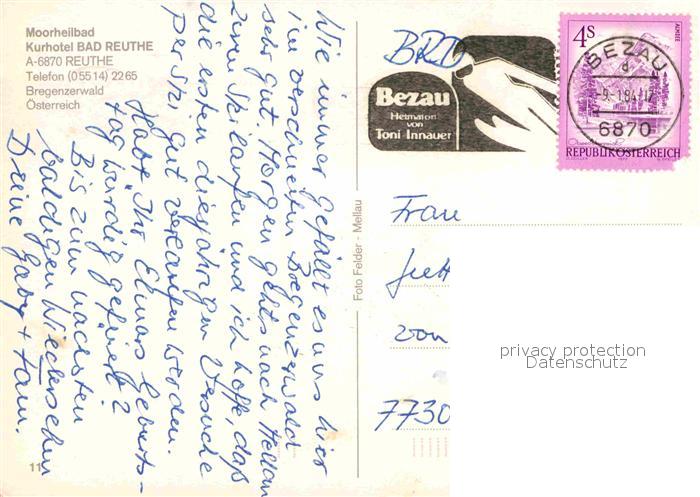 Moorheilbad
Kurhotel BAD REUTHE
A-6870 REUTHE
Telefon (0 55 14) 22 65
Bregenzerwald
Österreich
Wie immer gefällt es uns hier
sehr gut Morgen gehts nach Mellau
im verschneiten Bregenzerwald
zum Skilaufen und ich hoffe, daß
die ersten diesjährigen Versuche
per Ski gut verlaufen werden.
Habt Ihr Elmars Geburts-
tag würdig gefeiert?
Bis zum nächsten
baldigen Wiedersehen
Deine Gaby + Fam.
11
Foto Felder - Mellau
BRD
Bezau
Heimatort
von
Toni Innauer
4S
ALMSEE
REPUBLIK ÖSTERREICH
BEZAU
d
-9.-1.84-17
6870
Frau
von
7730
privacy protection
Datenschutz